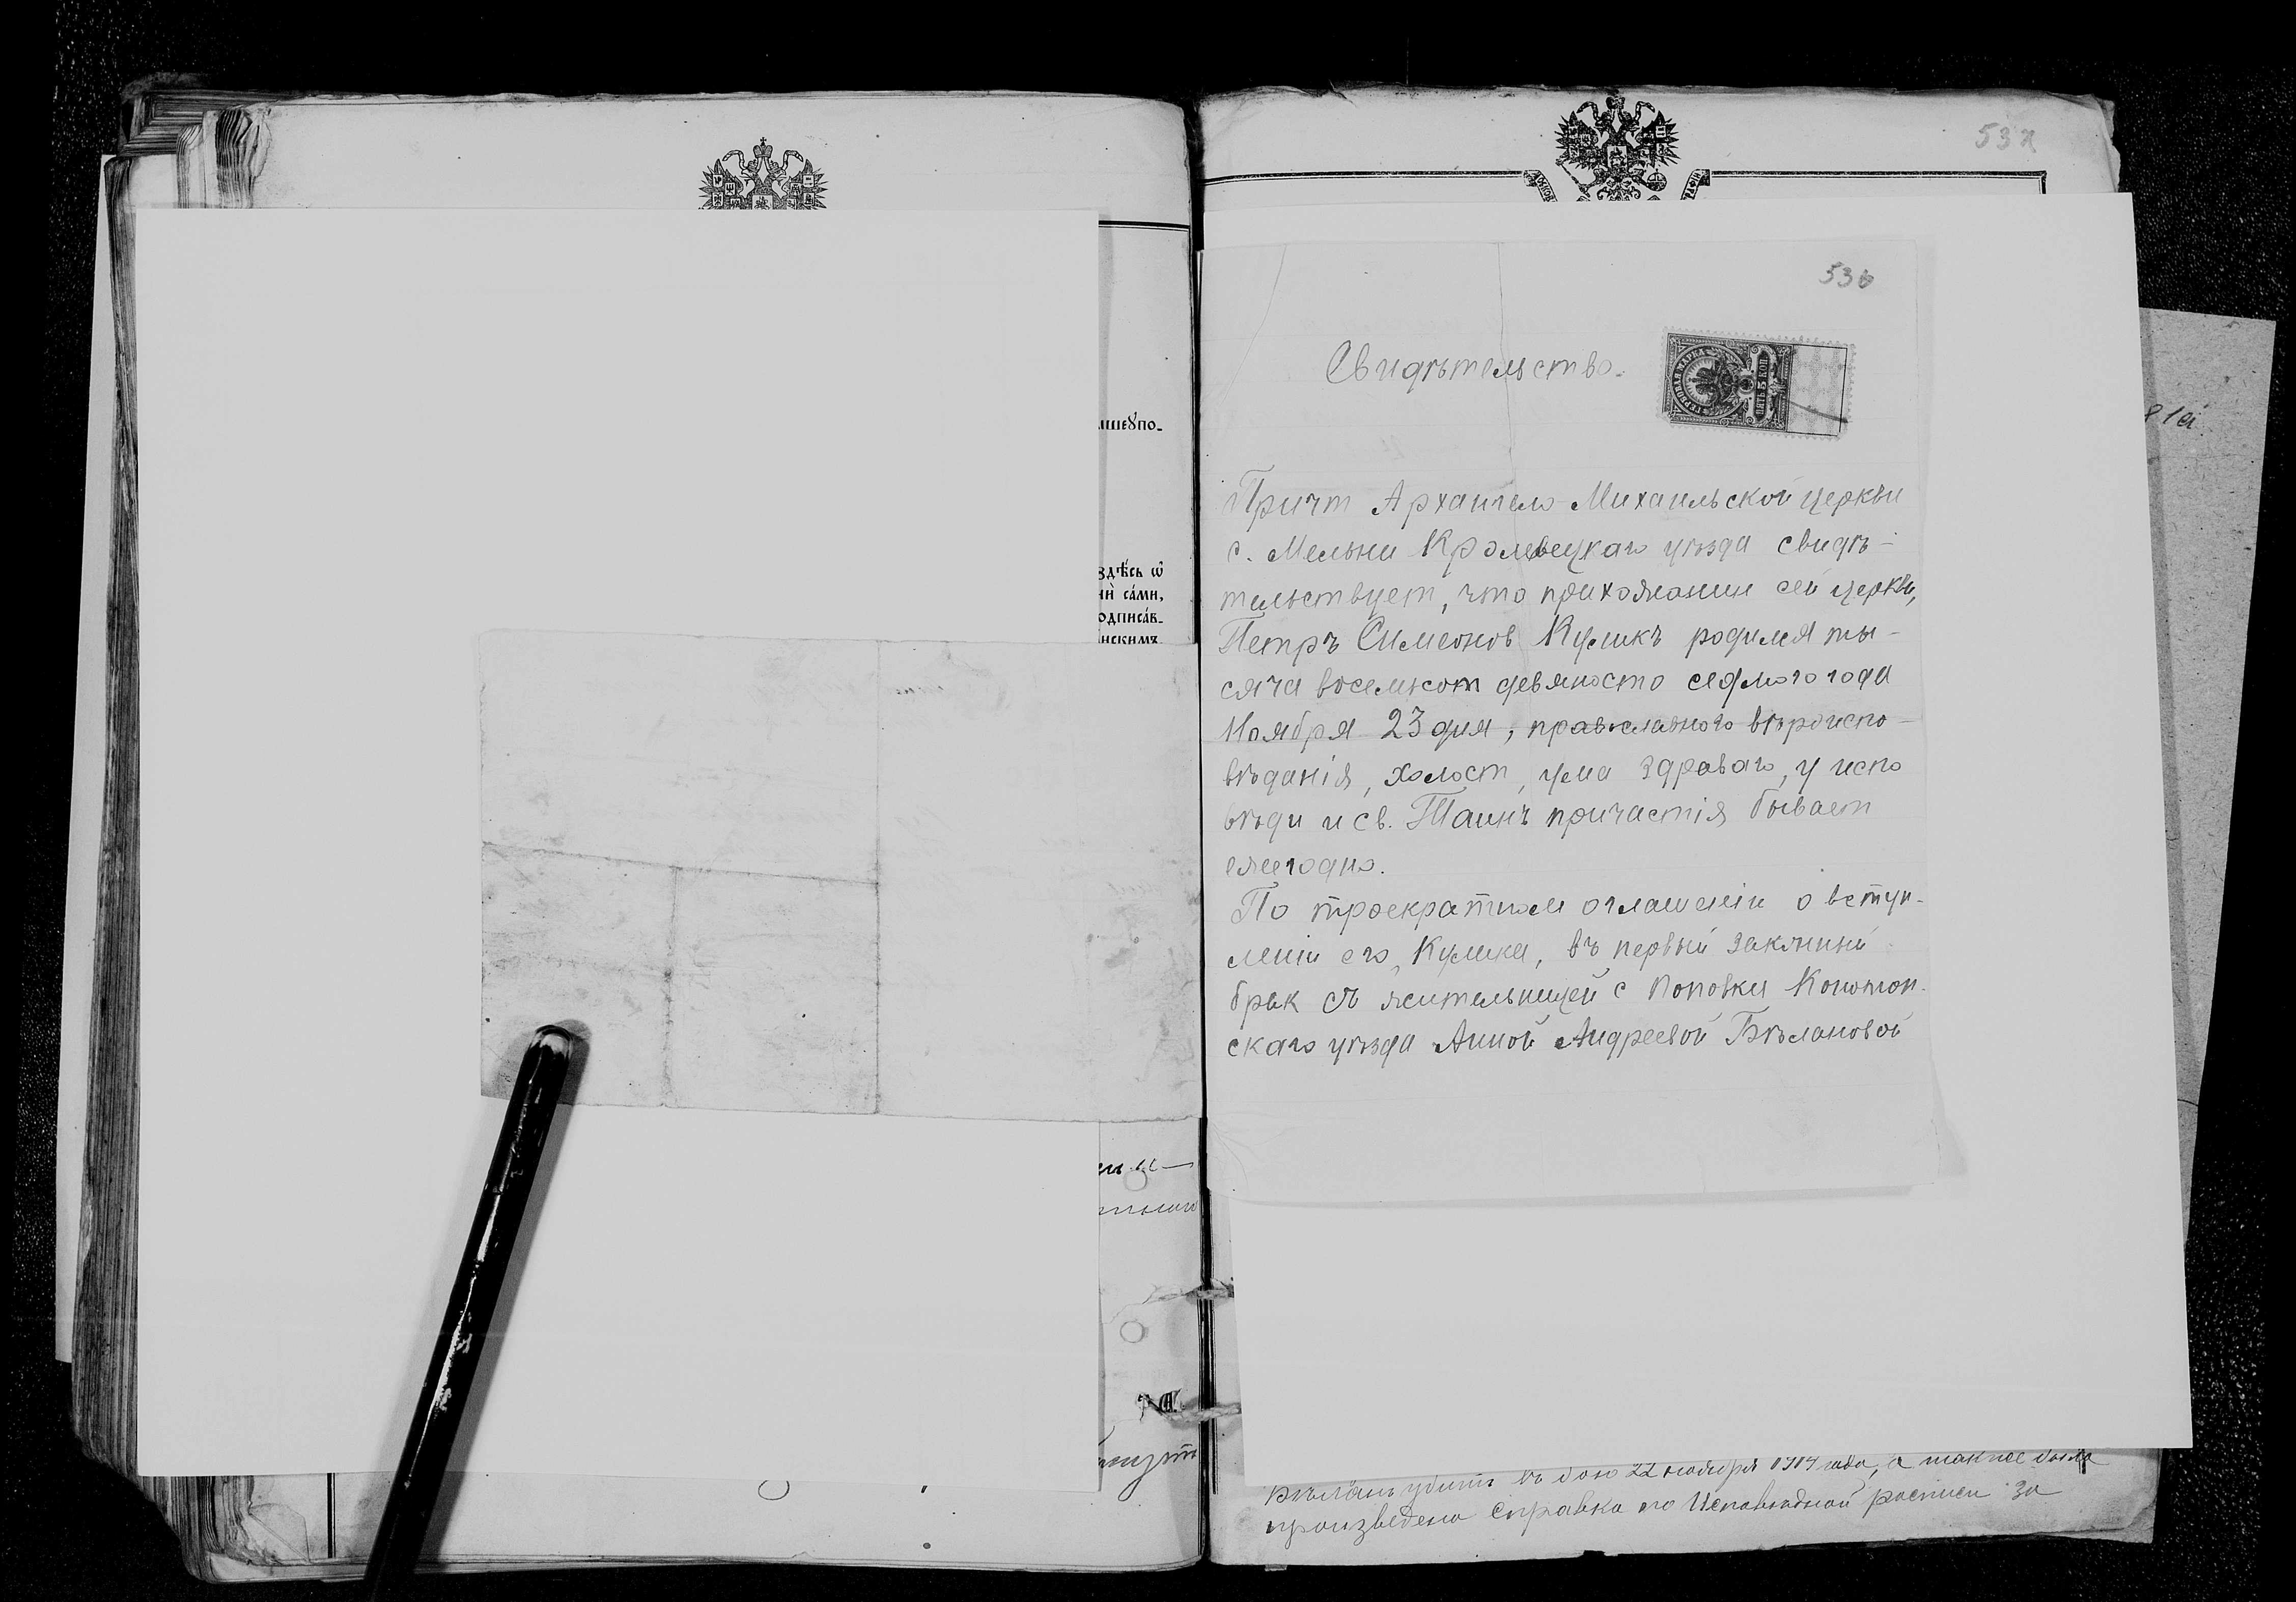 мшеꙋпо-
здѣсь ѿ
сáми,
одписáв-
нскимъ
53
536
Свидѣтельство.
ГЕРБОВАЯ МАРКА
ПЯТЬ 5 КОП
Причт Архангело-Михаильской церкви
с. Мельни Кролевецкаго уѣзда свидѣ-
тельствует, что прихожанин сей церкви,
Петръ Симеонов Куликъ родился ты-
сяча восемьсот девяносто седмого года
Ноября 23 дня, православного вѣроиспо-
вѣданія, холост, ума здраваго, у испо
вѣди и св. Таинъ причастія бывает
ежегодно.
По троекратном оглашеніи о вступ-
леніи его, Кулика, въ первый законный
брак съ жительницей с Поповки Конотоп-
скаго уѣзда Анной Андреевой Бѣлановой
Бѣланъ убитъ въ бою 22 ноября 1914 года, а также была
произведена справка по Исповѣдной росписи за